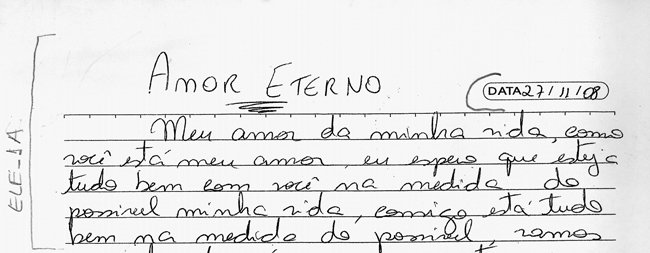 AMOR ETERNO
DATA 27/11/08
Meu amor da minha vida, como
você está meu amor, eu espero que esteja
tudo bem com você na medida do
possivel minha vida, comigo está tudo
bem na medida do possivel, vamos
ELE-1A